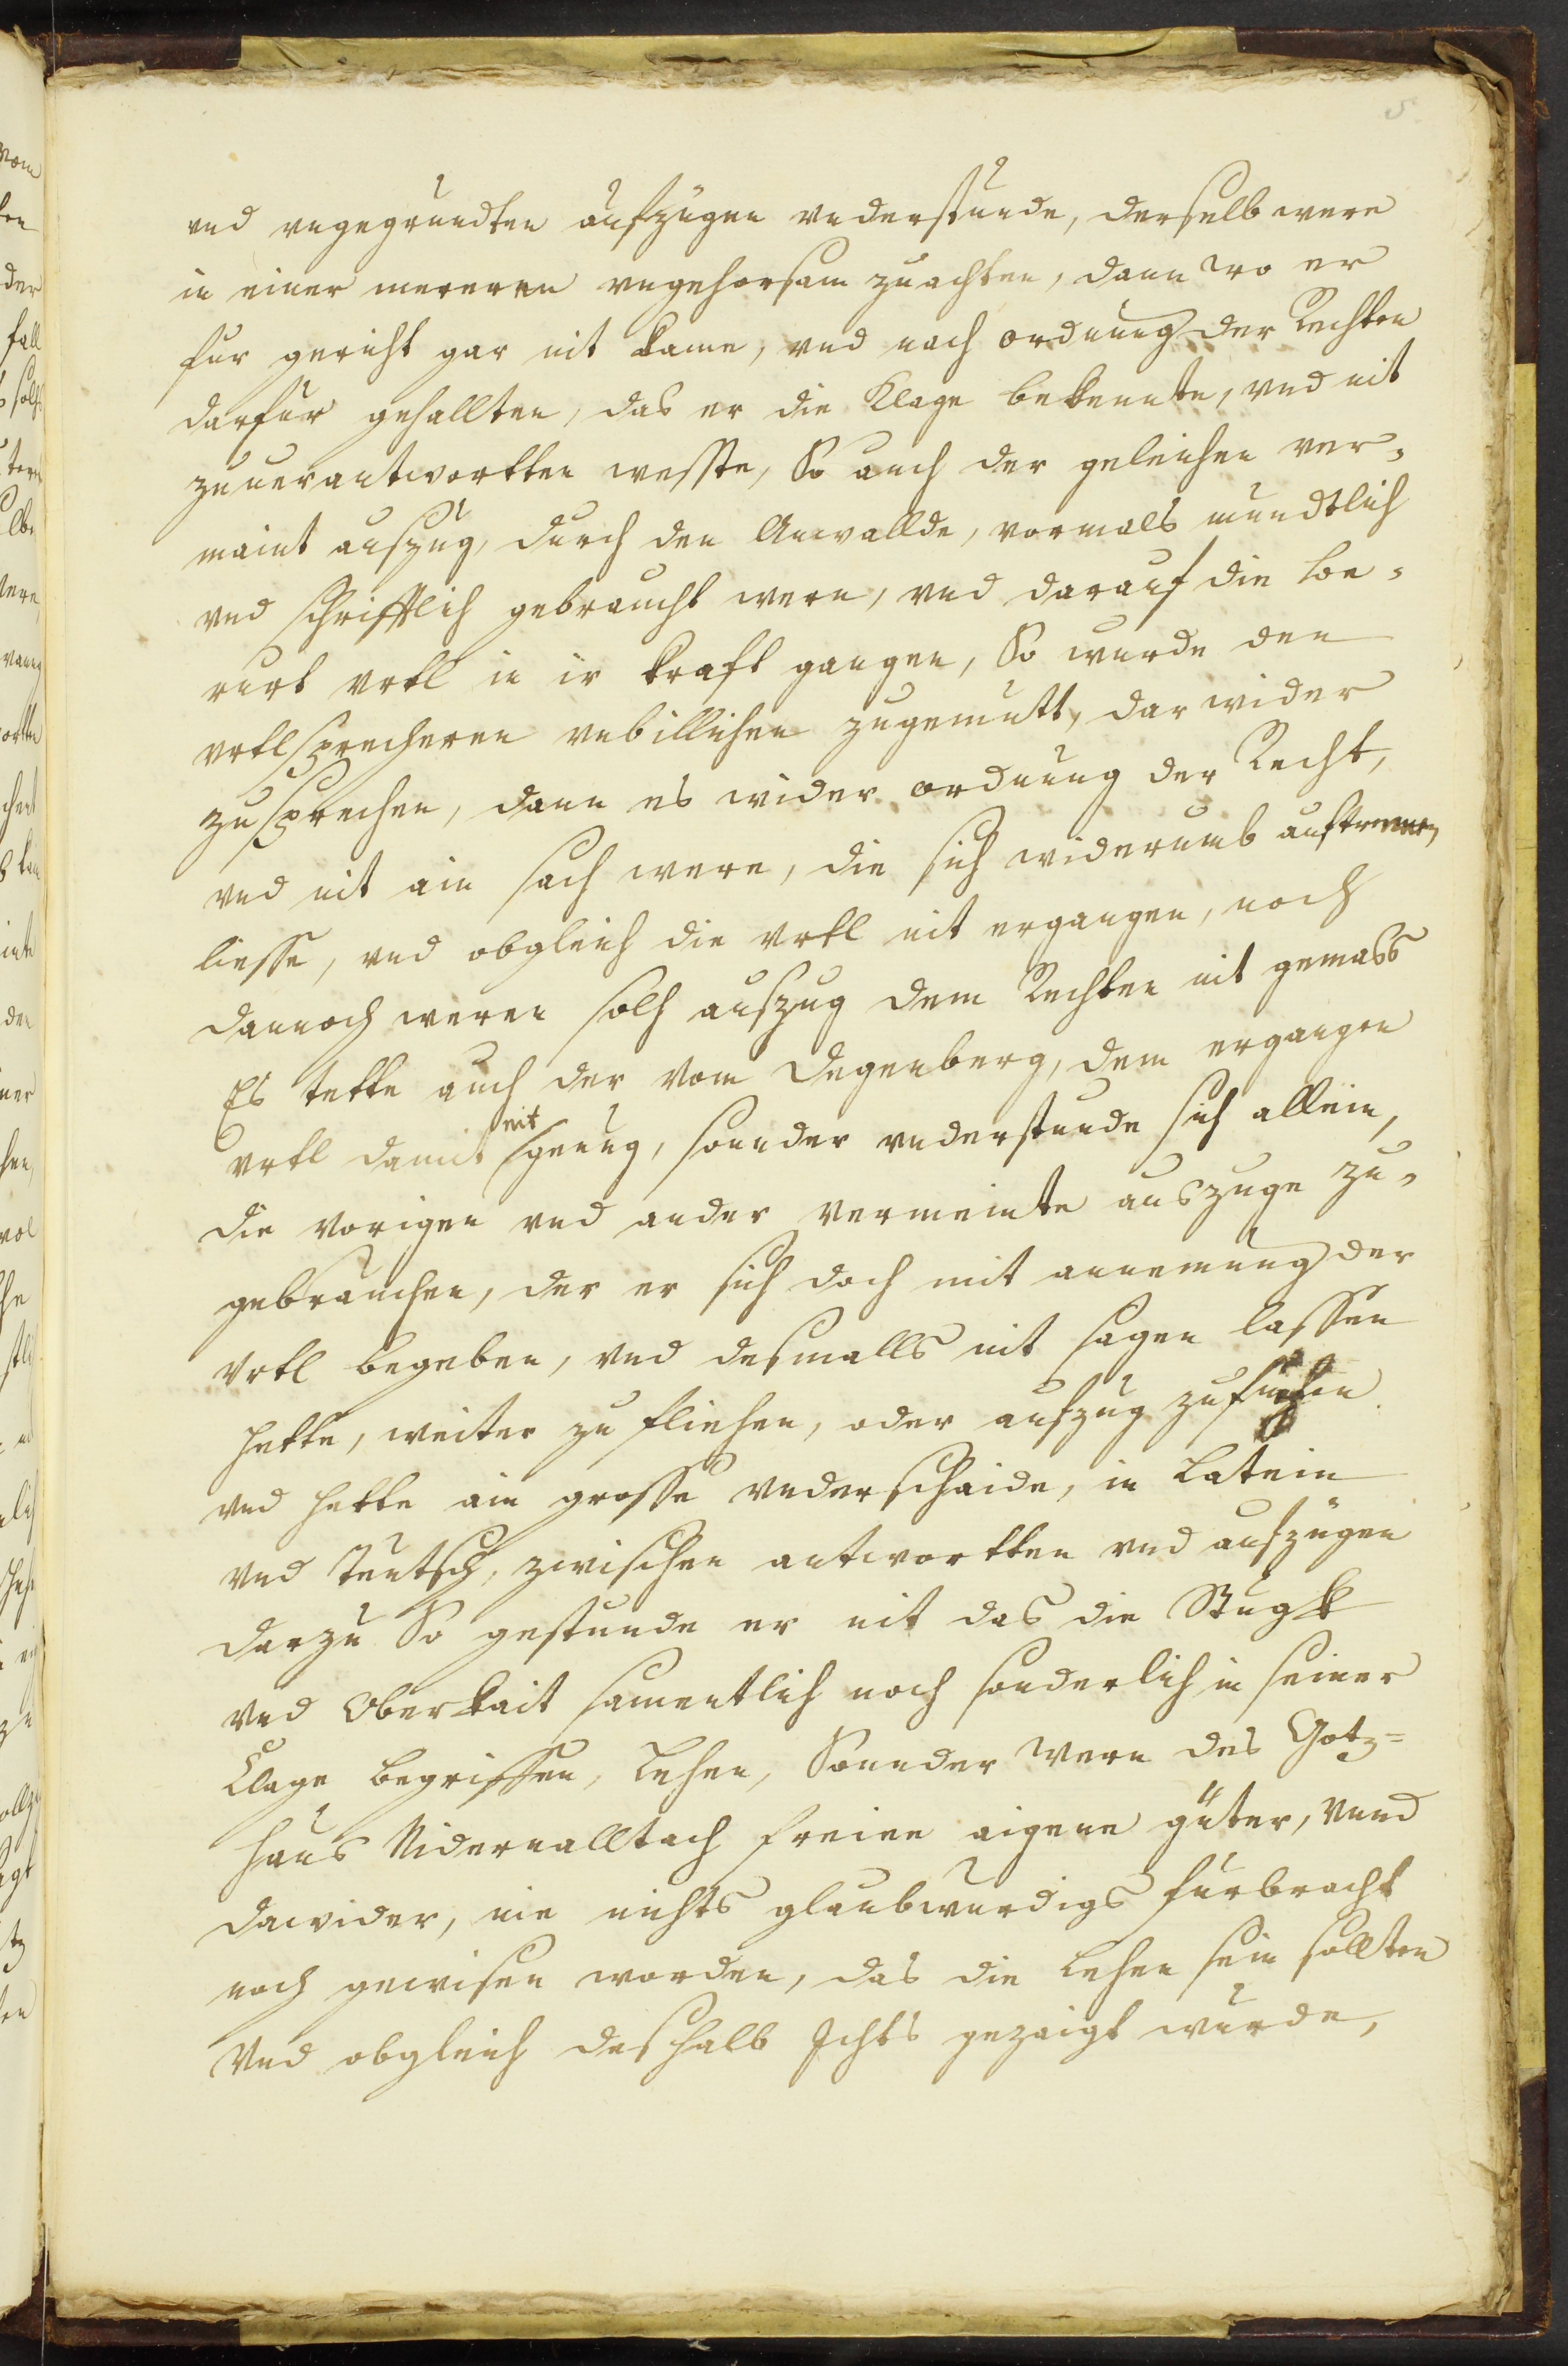 und ungegrundten aufzügen understunde, derselb were
in einer mereren ungehorsam zu achten, dann wo er
fur gericht gar nit kame, und nach ordnung der Rechten
darfur gehallten, das er die Klage bekennte, und nit
zuuerantwortten wesste, So auch der geleichen ver-
maint auszug, durch den Anwallde, vormals mundtlich
und schrifftlich gebraucht wern, und darauf die be-
rurt urtl in ir kraft gangen, So wurde den
urtlsprecheren unbillichen zugemutt, dar wider
zusprechen, dann es wider ordnung der Recht,
und nit ain sach were, die sich widerumb auftrennen
liesse, und obgleich die urtl nit ergangen, noch
dannoch weren solh auszug dem Rechten nit gemass
Es tette auch der vom Degenberg, dem ergangen
urtl damit nit genug, sonnder understunde sich allein,
die vorigen und ander vermeinte auszuge zu-
gebrauchen, der er sich doch mit annemung der
Urtl begeben, und desmalls nit sagen lassen
hette, weiter zu fliehen, oder auszug zusuchen
und hette ain grosse underschaide, in Latein
und Teutsch, zwischen antwortten und auszügen
darzu So gestunde er nit das die Stugk
und Oberkait samentlich noch sonderlich in seiner
Clage begriffen, Lehen, Sonnder wern des Gotz=
haus Nidernalltach freien aigene güter, Unnd
dawider, nie nichts glaubwurdigs furbracht
noch gewisen worden, das die Lehen sein sollten
Und obgleich deshalb Ichts gezaigt wurde,